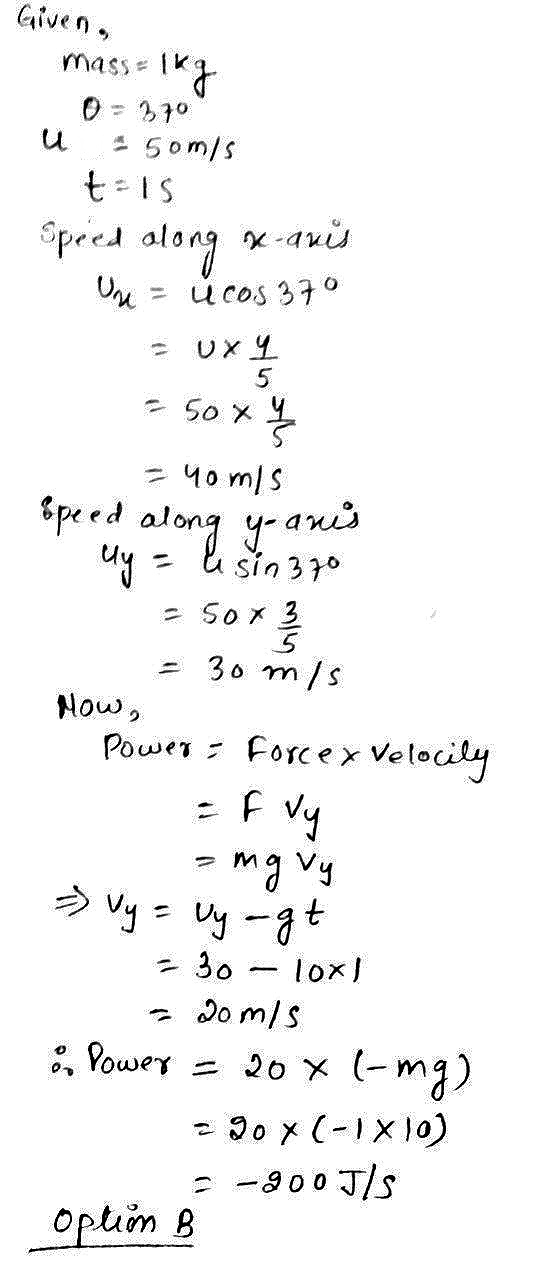 Given,
mass = 1kg
θ = 37°
u = 50m/s
t = 1s
Speed along x-axis
Ux = u cos 37°
= U × 4/5
= 50 × 4/5
= 40 m/s
Speed along y-axis
uy = u sin 37°
= 50 × 3/5
= 30 m/s
Now,
Power = Force × Velocity
= F Vy
= mg Vy
⇒ Vy = Uy - gt
= 30 - 10×1
= 20 m/s
∴ Power = 20 × (-mg)
= 20 × (-1 × 10)
= -200 J/s
Option B